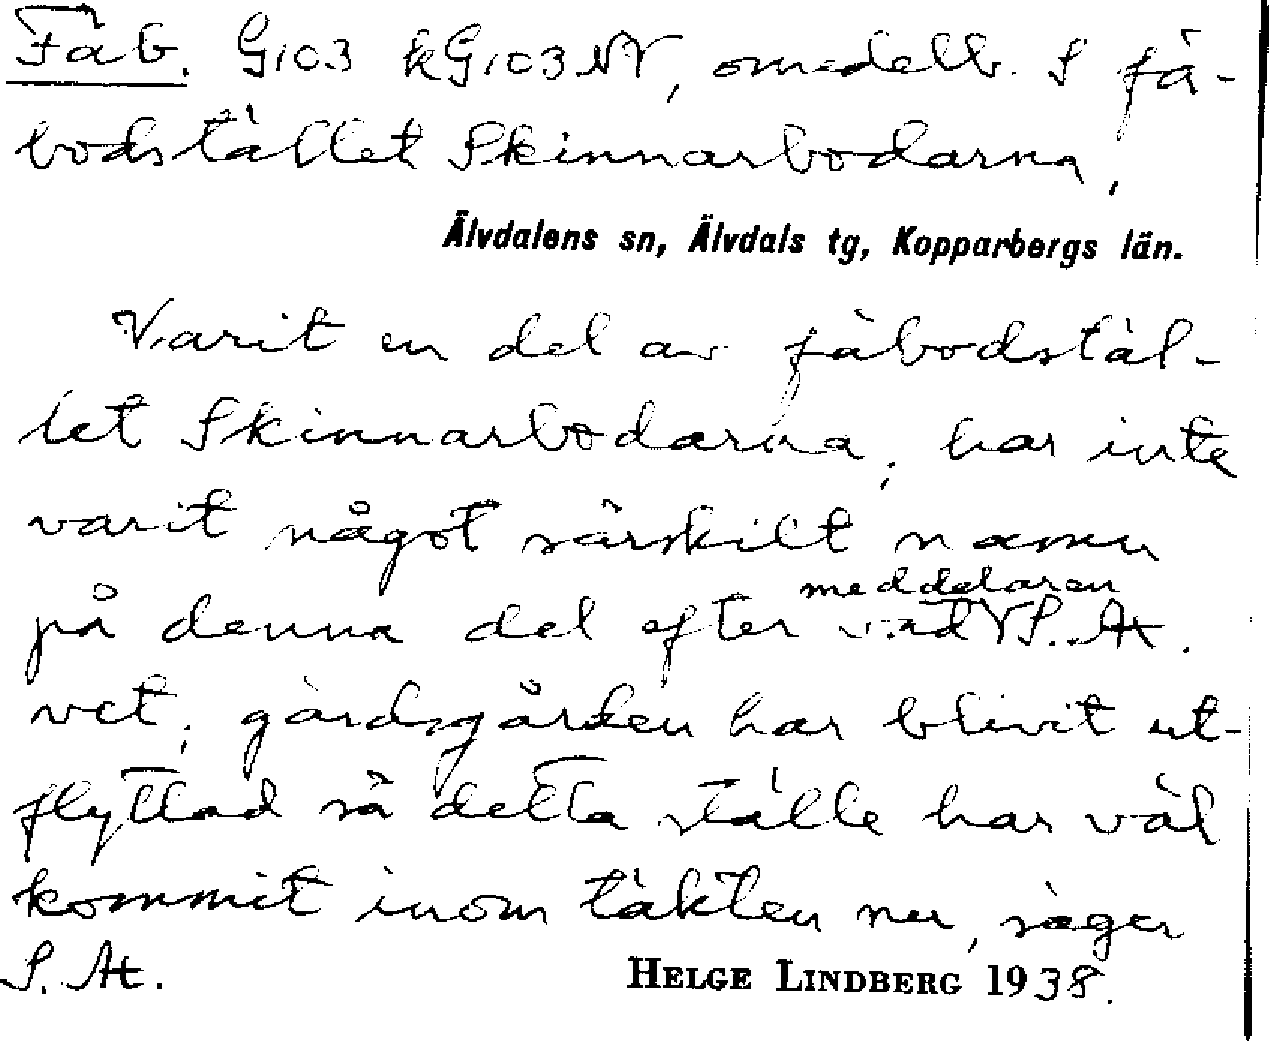 Fäb. G103 kG103NV, omedelb. S fä-
bodstället Skinnarbodarna,
Älvdalens sn, Älvdals tg, Kopparbergs län.
Varit en del av fäbodstäl-
let Skinnarbodarna, har inte
varit något särskilt namn
meddelaren
på denna del efter vad S. At.
vet, gärdsgården har blivit ut-
flyttad så detta ställe har väl
kommit inom täkten nu, säger
S. At.
HELGE LINDBERG 1938.